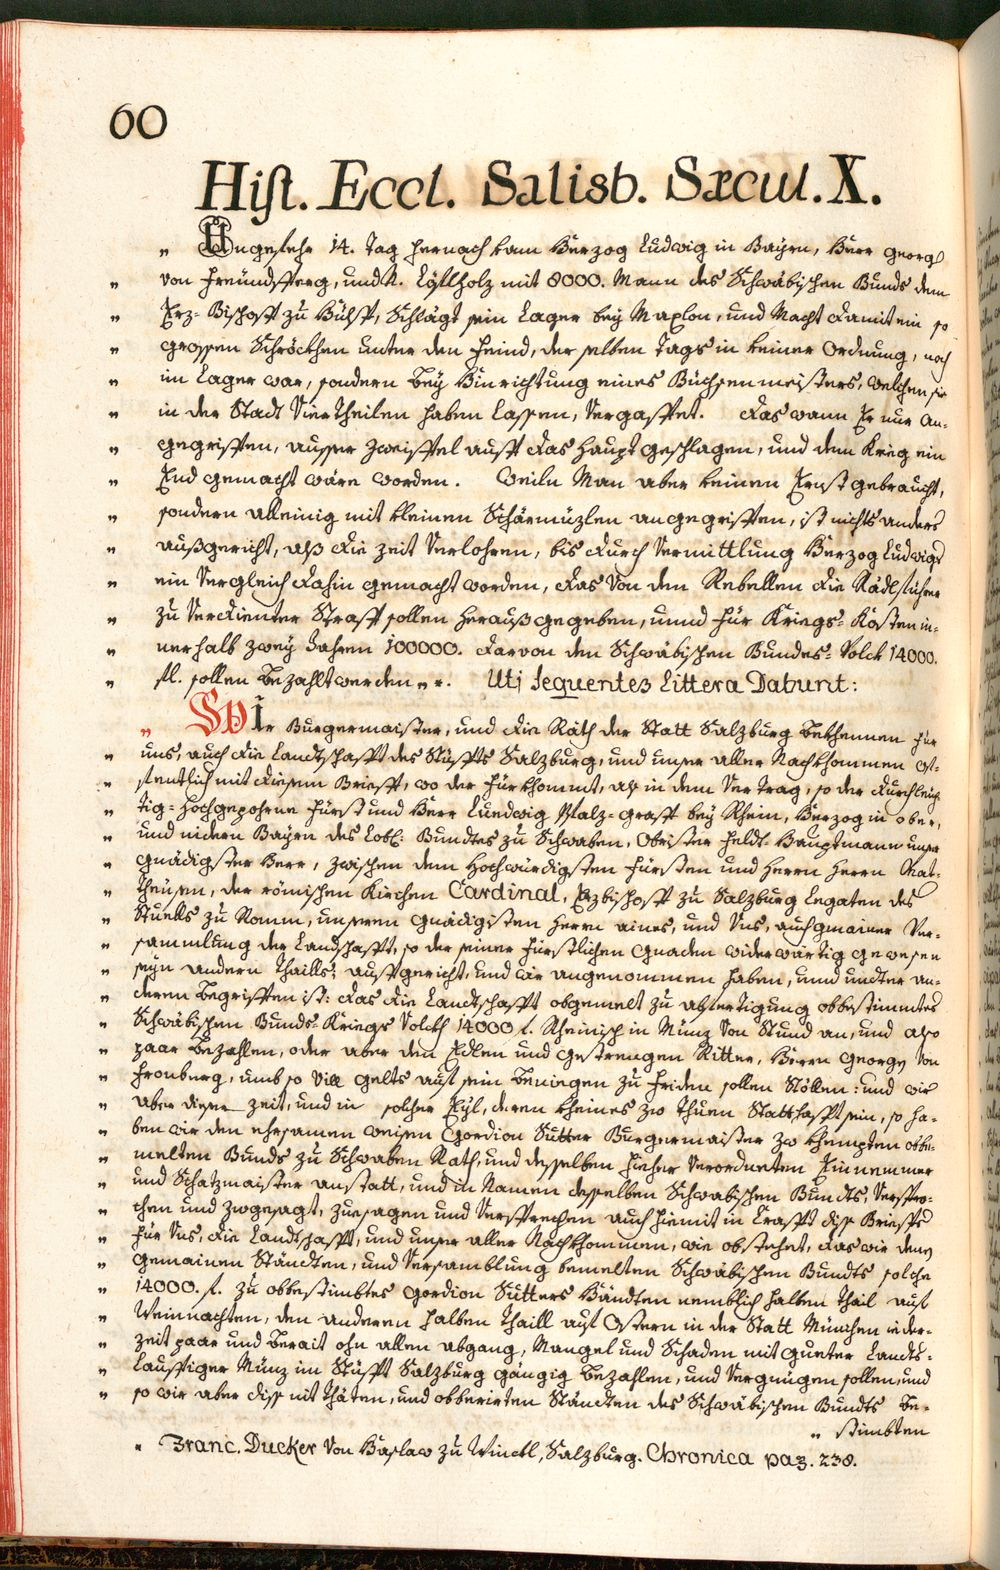 60
Hist. Eccl. Salisb. Sæcul. X.
„ Ungefehr 14. Tag hernach kam Herzog Ludwig in Bayrn, Herr Georg
„ von Freündsperg, und N. Löffholz mit 8000. Mann des Schwäbischen Bunds dem
„ Erz-Bischoff zu Hülff, Schlägt sein Lager bey Maxlon, und Macht damit ein so
„ grossen Schröckhen unter den Feind, der selben Tags in keiner Ordnung, noch
„ im Lager war, sondern bey Hinrichtung eines Büchsenmeisters, welchen sie
„ in der Stadt Viertheilen haben lassen, Vergaffet. Das wann Er nur An-
„ gegriffen, ausser zweiffel auff das Haupt geschlagen, und dem Krieg ein
„ End gemacht wäre worden. Weiln Man aber keinen Ernst gebraucht,
„ sondern alleinig mit kleinen Schärmüzlen angegriffen, ist nichts anders
„ außgericht, alß die zeit Verlohren, bis durch Vermittlung Herzog Ludwigs
„ ein Vergleich dahin gemacht worden, das von den Rebellen die Rädlführer
„ zu Verdienter Straff sollen herauß gegeben, unnd für Kriegs-Kosten in-
„ nerhalb zwey Jahren 100000. darvon den Schwäbischen Bundes-Volck 14000.
„ fl. sollen bezahlt werden „ „. Uti sequentes Littera Dabunt:
„ Wir Burgermaister, und die Räth der Statt Salzburg bekhennen für
„ uns, auch die Landtschafft des Stüffts Salzburg, und unser aller Nachkhommen off-
„ fentlich mit diesem Brieff, wo der fürkhommt, alß in dem Vertrag, so der Durchleich-
„ tig-Hochgepohrne Fürst und Herr Luedwig Pfalz-Graff bey Rhein, Herzog in ober,
„ und nidern Bayrn des Lobl: Bundtes zu Schwaben, Obrister Feldt-Hauptmann unser
„ gnädigster Herr, zwischen dem Hochwürdigsten Fürsten und Herrn Herrn Mat-
„ theusen, der römischen Kirchen Cardinal, Erzbischoff zu Salzburg Legaten des
„ Stuells zu Romm, unseren gnädigisten Herrn aines, und Uns, auch gmainer Ver-
„ sammlung der Landschafft, so der seiner Fürstlichen Gnaden widerwärtig gewesen
„ seyn andern Thaills, auffgericht, und wir angenommen haben, unnd undter an-
„ deren begriffen ist: das die Landtschafft obgemelt zu abfertigung obbestimmtes
„ Schwäbischen Bunds-Kriegs Volckh 14000 f. Rheinisch in Münz von Stund an, und also
„ paar bezahlen, oder aber dem Edlen und gestrengen Ritter, Herrn Georgen von
„ Fronberg, umb so vill gelts auf sein beniegen zu friden sollen stöllen: und wir
„ aber dieser zeit, und in solcher Eyl, deren kheines zw thuen Statthafft sein, so ha-
„ ben wir den ehrsamen weisen Gordion Sutter Burgermaister zw Khempten obbe-
„ melten Bunds zu Schwaben Rath, und desselben hieher Verordneten Einnemmer
„ und Schatzmaister anstatt, und in Namen desselben Schwabischen Bundts, Verspro-
„ chen und zwgesagt, Zuesagen und Versprechen auch hiemit in Crafft diss Brieffs
„ für Uns, die Landtschafft, und unser aller Nachkhommen, wie obstehet, das wir denen
„ gemainen Ständten, und Versamblung bemelten Schwäbischen Bundts solche
„ 14000. f. zu obbestimbtes Gordion Sutters Händten nemblich halben Thail auf
„ Weinnachten, den anderen halben Thaill auf Ostern in der Statt München ieder-
„ zeit paar und berait ohn allen abgang, Mangel und Schaden mit gueter Landts-
„ Lauffiger Münz im Stüfft Salzburg gängig bezahlen, und Vergnügen sollen, und
„ so wir aber diss nit thäten, und obberirten Ständten des Schwäbischen Bundts be-
„ stimbten
„ Franc. Ducker von Haslaw zu Winckl, Salzburg. Chronica pag. 238.